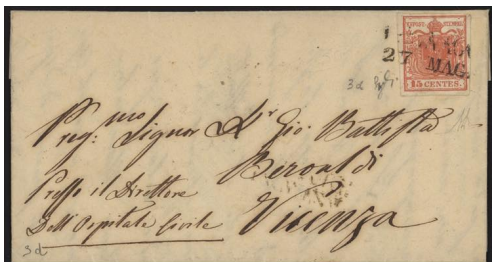 15 CENTES.
27 MAG.
3d
Preg.mo Signor Dr Gio. Battista
Beroaldi
Presso il Direttore
Dell'Ospitale Civile
Vicenza
3d